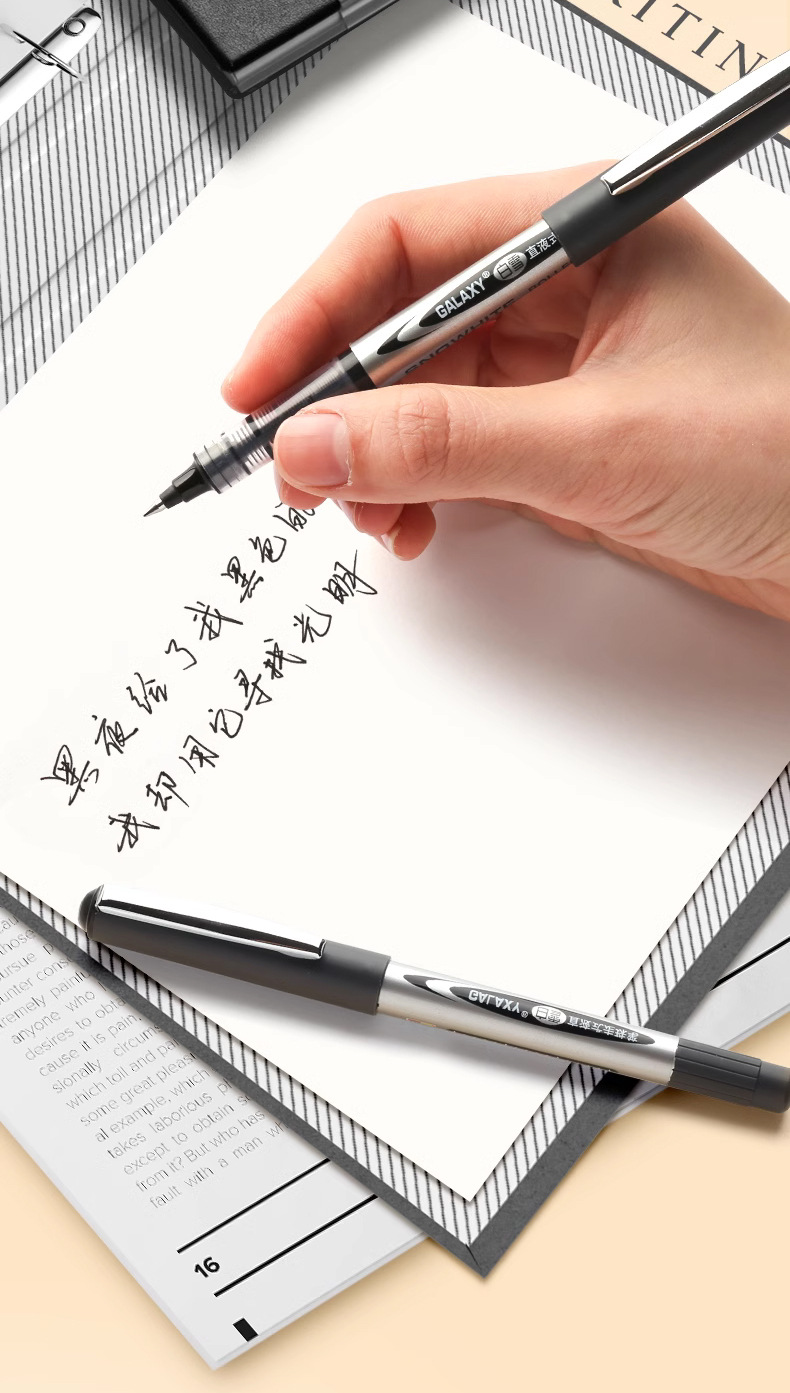 RITIN
GALAXY® 白雪 直液式
SNOWHITE
黑夜给了我黑色的
我却用它寻找光明
GALAXY® 白雪
unter
anyone who
desires to obta
cause it is pain
sionally circum
which toil and pa
some great pleas
al example, which
takes laborious
except to obtain
from it? But who has
fault with a man
16